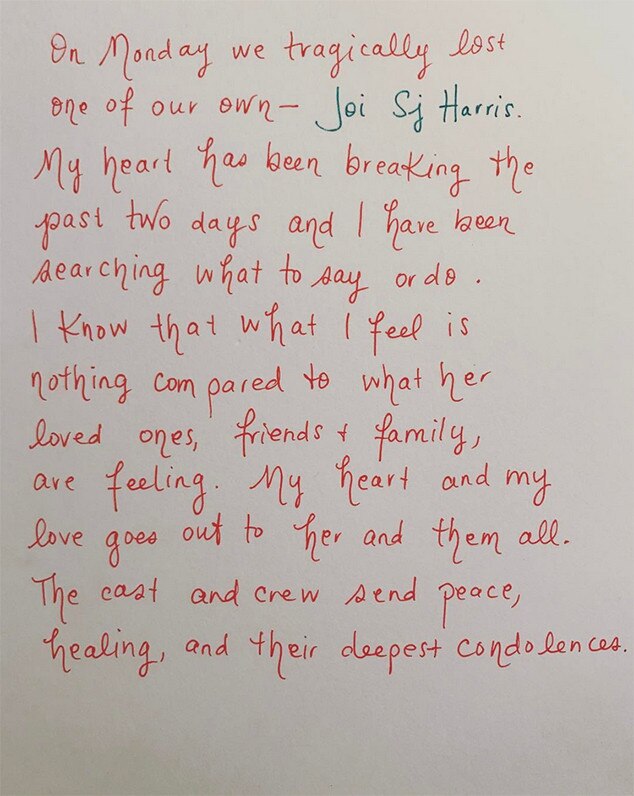 On Monday we tragically lost
one of our own - Joi Sj Harris.
My heart has been breaking the
past two days and I have been
searching what to say or do.
I know that what I feel is
nothing compared to what her
loved ones, friends + family,
are feeling. My heart and my
love goes out to her and them all.
The cast and crew send peace,
healing, and their deepest condolences.